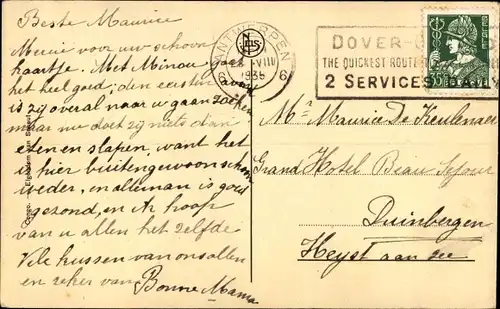 Beste Maurice
Merci voor uw schoon
kaartje. Met Minou gaat
het heel goed; den eersten avond
is zij overal naar u gaan zoeken
maar nu doet zij niets dan
eten en slapen, want het
is hier buitengewoon schoon
weder, en alleman is goed
gezond, en Ik hoop
van u allen het zelfde
Vele kussen van ons allen
en zeker van Bonne Mama
ANTWERPEN
VIII
1936
DOVER-
THE QUICKEST ROUTE
2 SERVICES DAILY
Mr Maurice De Keulenaer
Grand Hotel Beau Sejour
Duinbergen
Heyst aan zee